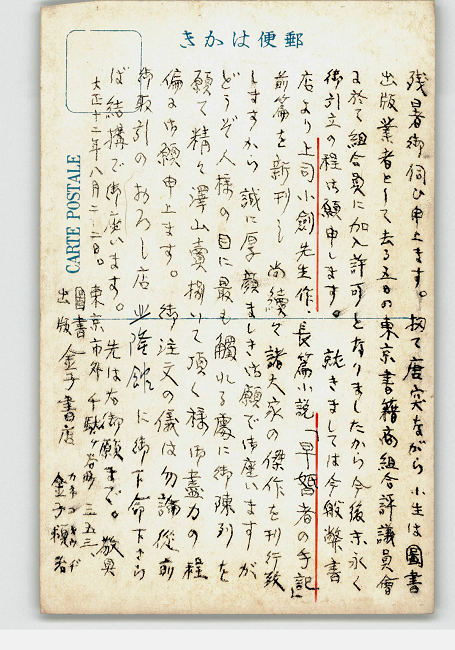 きかは便郵
CARTE POSTALE
残暑御伺ひ申上ます。扨て唐突ながら小生は圖書
出版業者として去る五日の東京書籍商組合評議員會
に於て組合員に加入許可となりましたから今後末永く
御引立の程御願申します。就きましては今般弊書
店より上司小劍先生作、長篇小説「早婚者の手記」
前篇を新刊し尚續々諸大家の傑作を刊行致
しますから誠に厚顔ましき御願で御座いますが
どうぞ人様の目に最も觸れる處に御陳列を
願て精々澤山賣捌いて頂く様御盡力の程
偏に御願申上ます。御注文の儀は勿論從前
御取引のおろし店 隆館に御下命下さら
ば結構で御座います。先は右御願まで。敬具
大正十二年八月二十二日。
東京市外千駄ヶ谷町三五三
圖書出版 金子書店